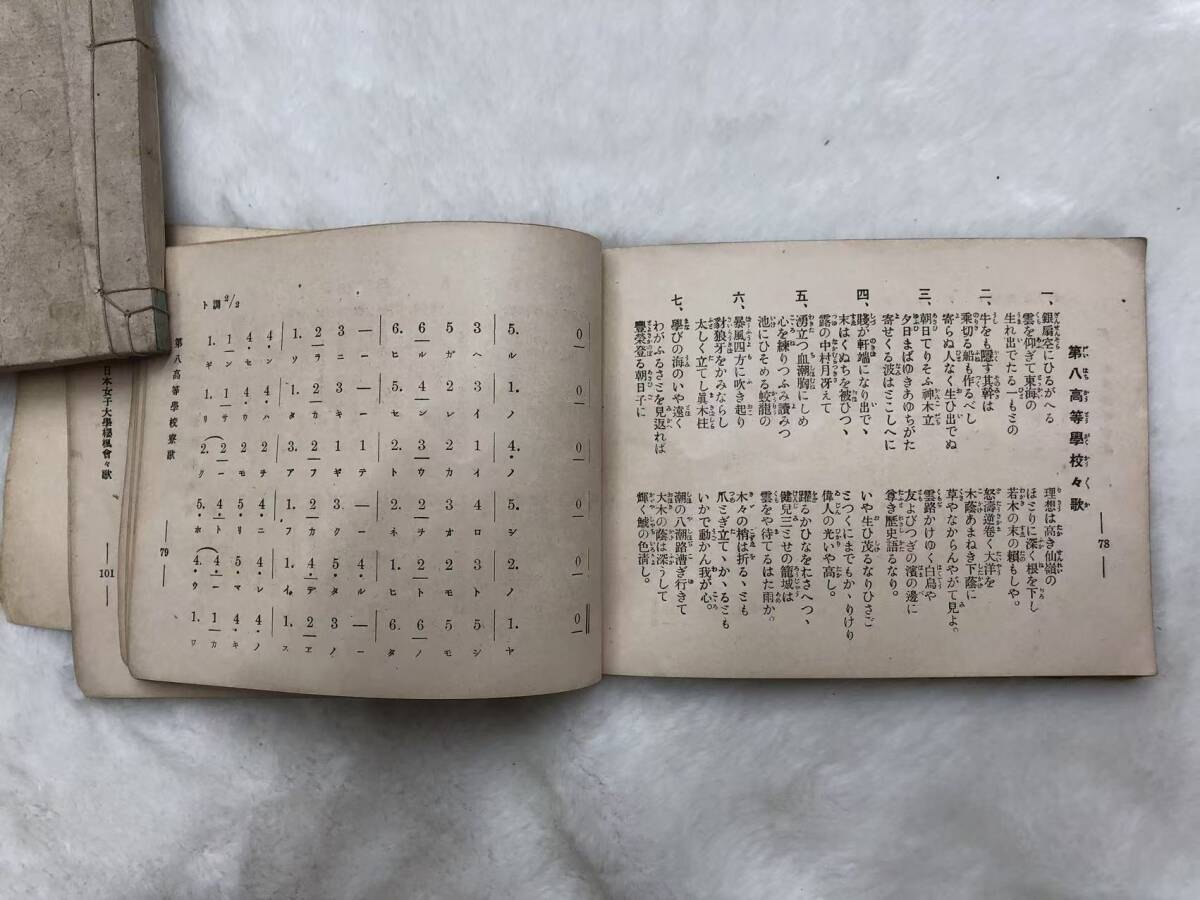 78
第八高等學校々歌
一、銀扇空にひるがへる
雲を仰ぎて東海の
生れ出でたる一もとの
理想は高き仙嶺の
ほとりに深く根を下し
若木の末の賴もしや。
二、牛をも隱す其幹は
乘切る船も作るべし
寄らぬ人なく生ひ出でぬ
怒濤逆卷く大洋を
木蔭あまねき下蔭に
草やなからんやがて見よ。
三、朝日てりそふ神木立
夕日まばゆきあゆちがた
寄せくる波はとこしへに
雲路かけゆく白鳥や
友よびつぎの濱の邊に
尊き歷史語るなり。
四、賤が軒端になり出で、
末はくぬちを被ひつ、
露の中村月冴えて
いや生ひ茂るなりひさご
とつくにまでもか、りけり
偉人の光いや高し。
五、湧立つ血潮胸にしめ
心を練りつふみ讀みつ
池にひそめる蛟龍の
躍るかひなをおさへつ、
健兒三とせの籠城は
雲をや待てるはた雨か。
六、暴風四方に吹き起り
豺狼牙をかみならし
太しく立てし眞木柱
木々の梢は折る、とも
爪とぎ立て、か、るとも
いかで動かん我が心。
七、學びの海のいや遠く
わがふるさとを見返れば
豐榮登る朝日子に
潮の八潮路漕ぎ行きて
大木の蔭は深うして
輝く鯱の色淸し。
79
第八高等學校寮歌
ト調 2/2
1. 1 4 4 | 1. 2 3 — | 6. 6 5 3 | 5. 0
ギンセン ソラニー ヒルガヘ ル
1. 1 4 4 | 1. 2 3 — | 5. 4 2 1 | 1. 0
リサウハ タカキー センレイ ノ
2. 2 2 2 | 3. 2 1 1 | 2. 3 2 1 | 4. 0
クーモチ アフギテ トウカイ ノ
5. 4 5 4 | 1. 2 3 3 | 2. 2 2 3 | 5. 0
ホトリニ フカク ネチオロ シ
ウーマレ イデタル ヒトモト ノ
1. 1 4 4 | 1. 2 3 — | 6. 6 5 5 | 1. 0
ワカキノ スエノー タノモシ ヤ
101
日本女子大學櫻楓會々歌